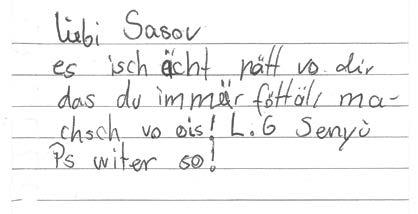 liebi Sasou
es isch ächt nätt vo dir
das du immär föttäli ma-
chsch vo ois! L.G Senyù
Ps witer so!